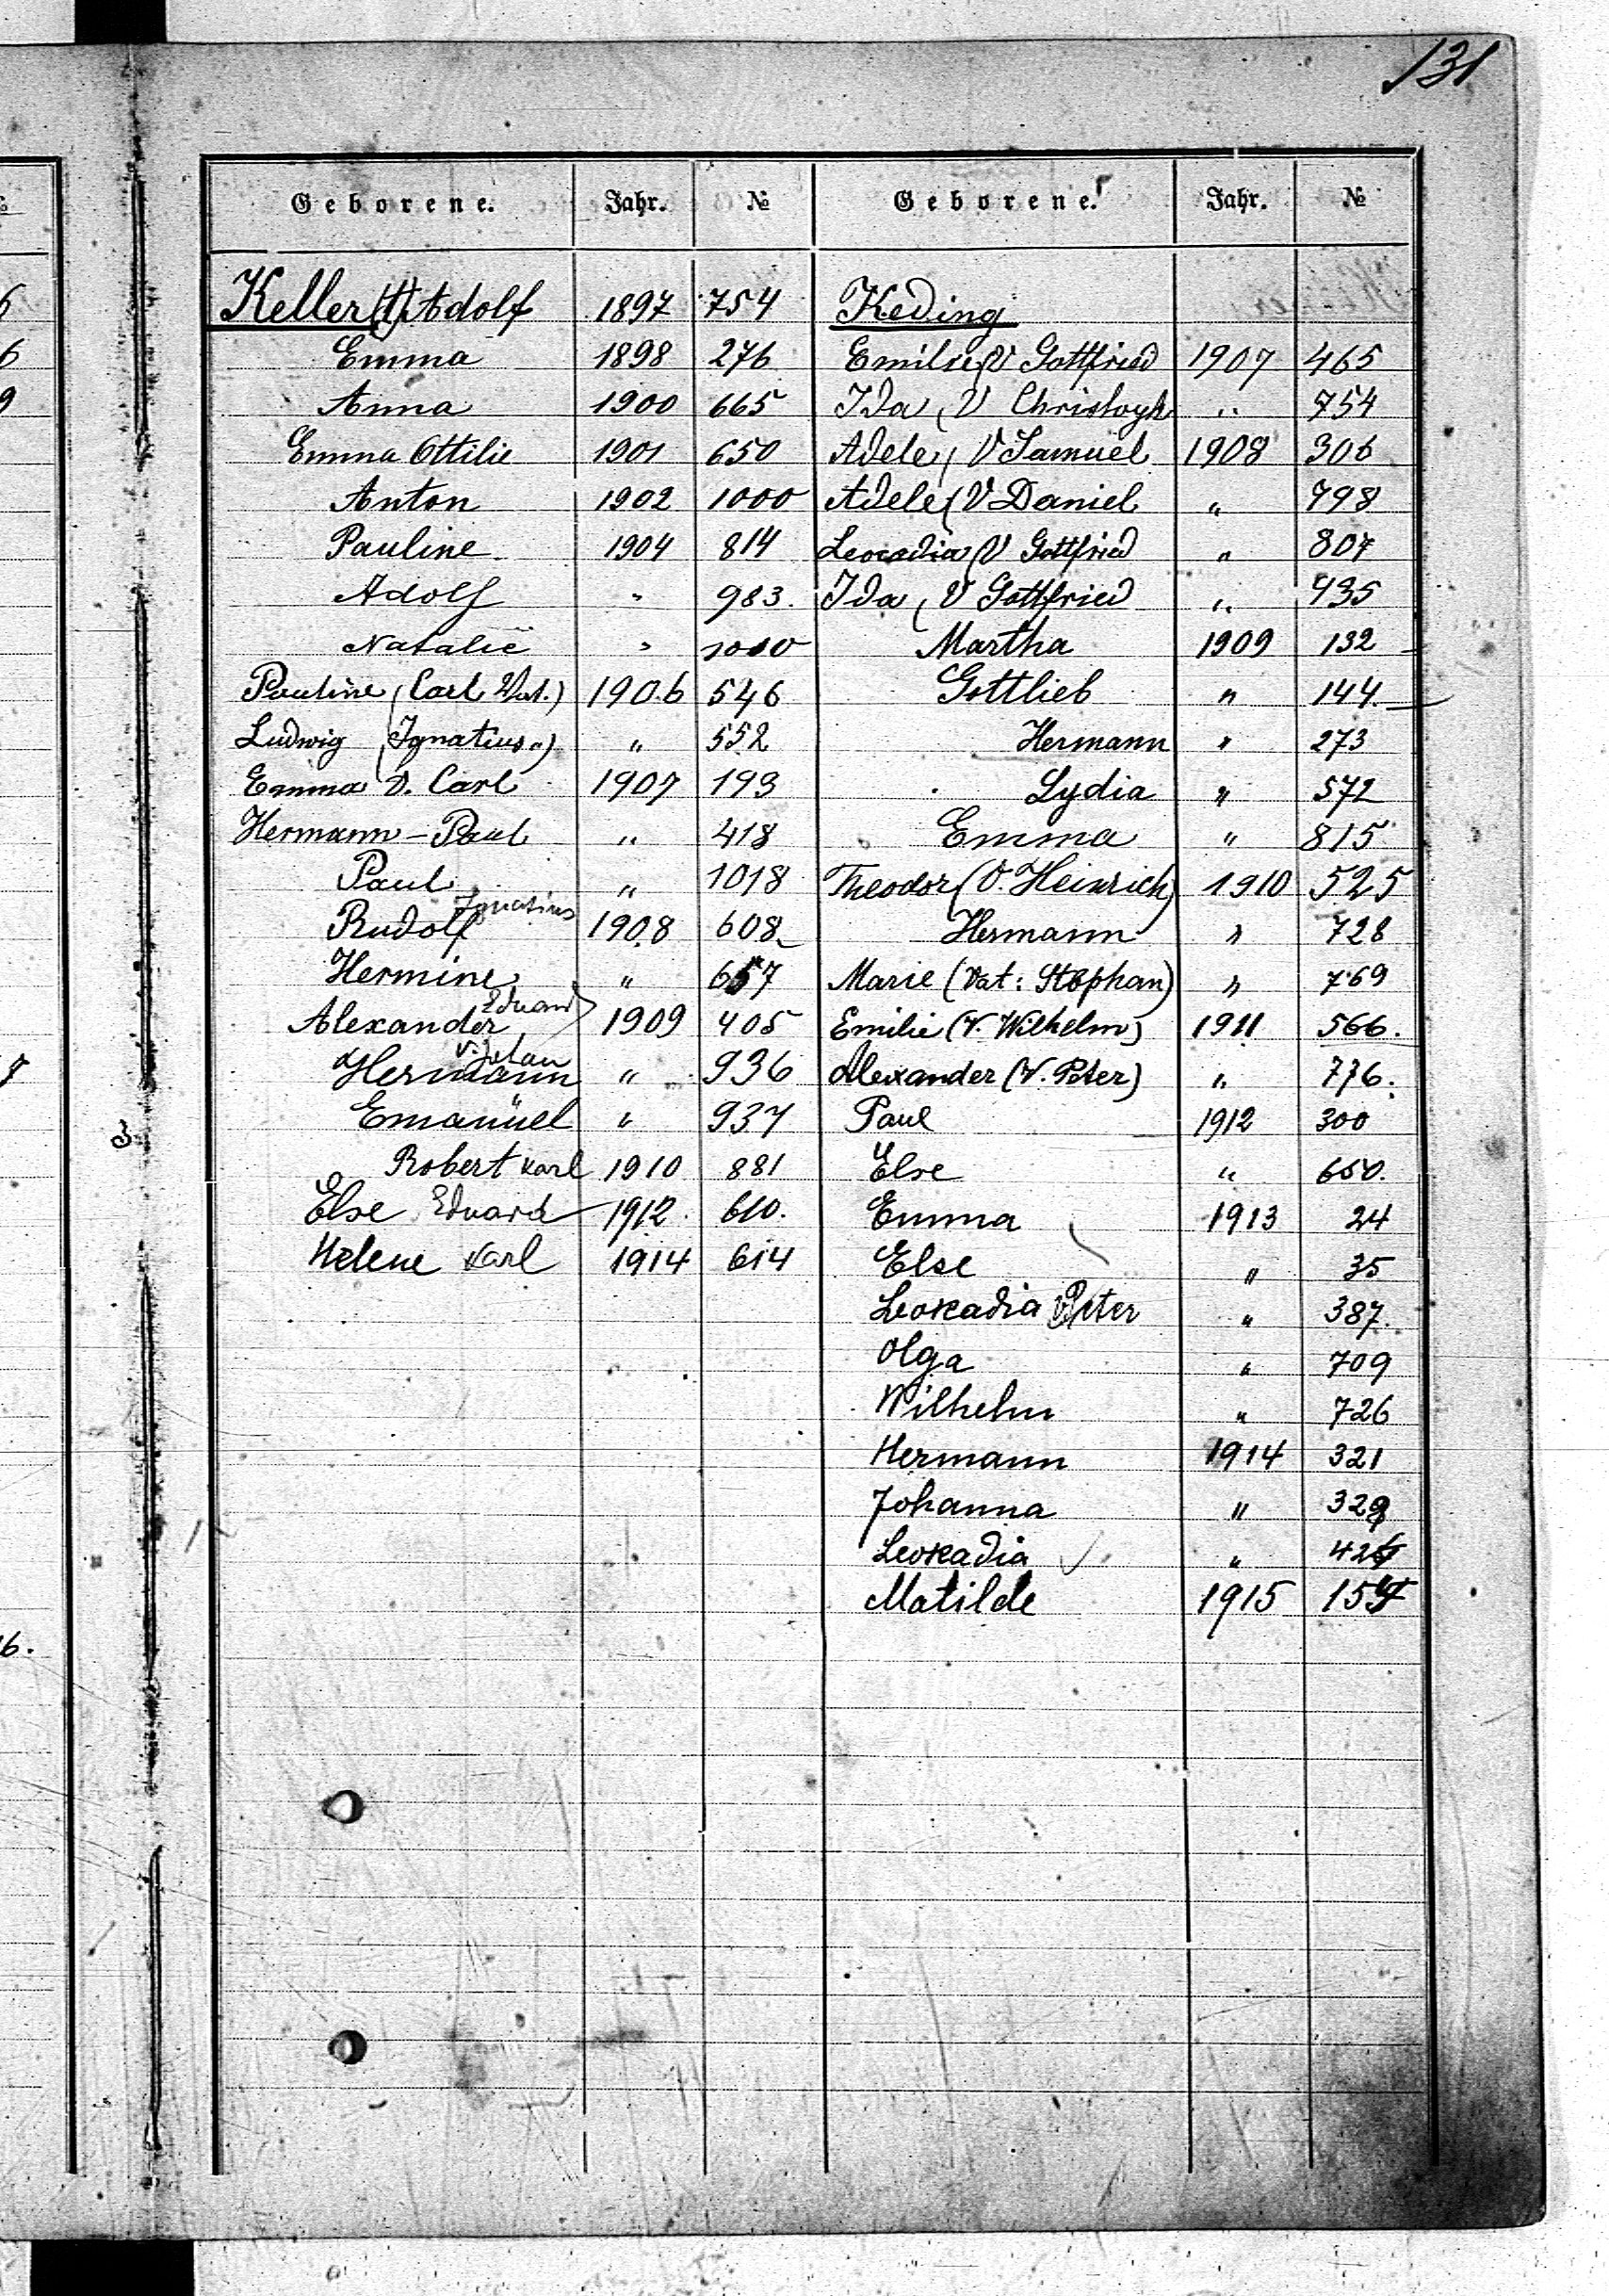 131
Geborene. Jahr. № Geborene. Jahr. №
Keller (t) Adolf 1897 754
Emma 1898 276
Anna 1900 665
Emma Ottilie 1901 650
Anton 1902 1000
Pauline 1904 814
Adolf " 983.
Natalie " 1010
Pauline (Carl Vat.) 1906 546
Ludwig (Ignatius ") " 552
Emma V. Carl 1907 193
Hermann-Paul " 418
Paul " 1018
Rudolf Ignatius 1908 608
Hermine " 657
Alexander Eduard 1909 405
Hermann v. Johan " 936
Emanuel " 937
Robert Karl 1910 881
Else Eduard 1912 610.
Helene Karl 1914 614
Keding
Emilie (V Gottfried 1907 465
Ida (V Christoph " 754
Adele (V Samuel 1908 306
Adele (V Daniel " 798
Leocadia (V Gottfried " 807
Ida (V Gottfried " 935
Martha 1909 132
Gottlieb " 144.
Hermann " 273
Lydia " 572
Emma " 815
Theodor (V. Heinrich) 1910 525
Hermann " 728
Marie (Vat: Stephan) " 769
Emilie (V. Wilhelm) 1911 566.
Alexander (V. Peter) " 776.
Paul 1912 300
Else " 650.
Emma 1913 24
Else " 35
Leokadia V Peter " 387.
Olga " 709
Wilhelm " 726
Hermann 1914 321
Johanna " 329
Leokadia "
Matilde 1915